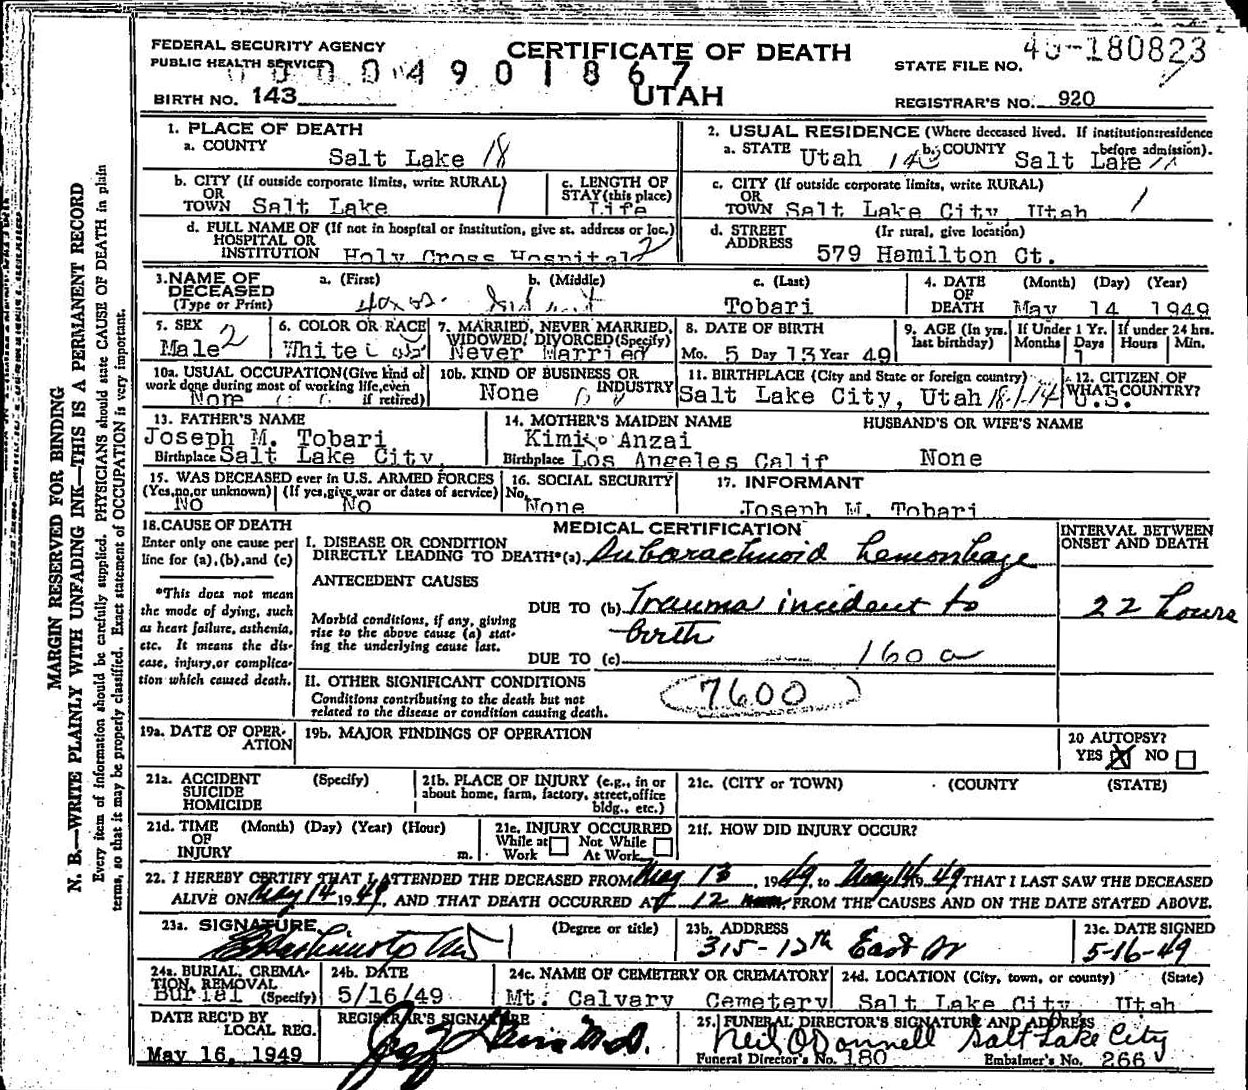 FEDERAL SECURITY AGENCY
PUBLIC HEALTH SERVICE
CERTIFICATE OF DEATH
STATE FILE NO. 180823
4901867
BIRTH NO. 143
UTAH
REGISTRAR'S NO. 920
1. PLACE OF DEATH
a. COUNTY Salt Lake 18
2. USUAL RESIDENCE (Where deceased lived. If institution:residence before admission).
a. STATE Utah b. COUNTY Salt Lake
b. CITY (If outside corporate limits, write RURAL)
OR
TOWN Salt Lake 1
c. LENGTH OF
STAY(this place)
Life
c. CITY (If outside corporate limits, write RURAL)
OR
TOWN Salt Lake City, Utah 1
d. FULL NAME OF (If not in hospital or institution, give st. address or loc.)
HOSPITAL OR
INSTITUTION Holy Cross Hospital 2
d. STREET (Ir rural, give location)
ADDRESS 579 Hamilton Ct.
3. NAME OF
DECEASED
(Type or Print)
a. (First) b. (Middle) c. (Last)
Tobari
4. DATE
OF
DEATH
(Month) (Day) (Year)
May 14 1949
5. SEX
Male 2
6. COLOR OR RACE
White
7. MARRIED, NEVER MARRIED,
WIDOWED, DIVORCED(Specify)
Never Married
8. DATE OF BIRTH
Mo. 5 Day 13 Year 49
9. AGE (In yrs.
last birthday)
If Under 1 Yr.
Months Days
1
If under 24 hrs.
Hours Min.
10a. USUAL OCCUPATION(Give kind of
work done during most of working life,even
if retired)
None
10b. KIND OF BUSINESS OR
INDUSTRY
None
11. BIRTHPLACE (City and State or foreign country)
Salt Lake City, Utah 18-1-14
12. CITIZEN OF
WHAT COUNTRY?
U.S.
13. FATHER'S NAME
Joseph M. Tobari
Birthplace Salt Lake City,
14. MOTHER'S MAIDEN NAME
Kimiko Anzai
Birthplace Los Angeles Calif
HUSBAND'S OR WIFE'S NAME
None
15. WAS DECEASED ever in U.S. ARMED FORCES
(Yes,no,or unknown) (If yes,give war or dates of service)
No No
16. SOCIAL SECURITY
No.
None
17. INFORMANT
Joseph M. Tobari
18. CAUSE OF DEATH
Enter only one cause per
line for (a),(b),and (c)
*This does not mean
the mode of dying, such
as heart failure, asthenia,
etc. It means the dis-
ease, injury,or complica-
tion which caused death.
MEDICAL CERTIFICATION
I. DISEASE OR CONDITION
DIRECTLY LEADING TO DEATH*(a) Subarachnoid hemorrhage
ANTECEDENT CAUSES
DUE TO (b) Trauma incident to
birth
Morbid conditions, if any, giving
rise to the above cause (a) stat-
ing the underlying cause last.
DUE TO (c) 160 a
INTERVAL BETWEEN
ONSET AND DEATH
22 hours
II. OTHER SIGNIFICANT CONDITIONS
Conditions contributing to the death but not
related to the disease or condition causing death.
7600
19a. DATE OF OPER-
ATION
19b. MAJOR FINDINGS OF OPERATION
20 AUTOPSY?
YES X NO
21a. ACCIDENT (Specify)
SUICIDE
HOMICIDE
21b. PLACE OF INJURY (e.g., in or
about home, farm, factory, street,office
bldg., etc.)
21c. (CITY or TOWN) (COUNTY) (STATE)
21d. TIME (Month) (Day) (Year) (Hour)
OF
INJURY m.
21e. INJURY OCCURRED
While at Work Not While At Work
21f. HOW DID INJURY OCCUR?
22. I HEREBY CERTIFY THAT I ATTENDED THE DECEASED FROM May 13, 1949, to May 14 1949 THAT I LAST SAW THE DECEASED
ALIVE ON May 14 1949, AND THAT DEATH OCCURRED AT 12 FROM THE CAUSES AND ON THE DATE STATED ABOVE.
23a. SIGNATURE (Degree or title)
Hashimoto MD
23b. ADDRESS
315-12th East
23c. DATE SIGNED
5-16-49
24a. BURIAL, CREMA-
TION, REMOVAL
(Specify)
Burial
24b. DATE
5/16/49
24c. NAME OF CEMETERY OR CREMATORY
Mt. Calvary Cemetery
24d. LOCATION (City, town, or county) (State)
Salt Lake City Utah
DATE REC'D BY
LOCAL REG.
May 16, 1949
REGISTRAR'S SIGNATURE
M.D.
25. FUNERAL DIRECTOR'S SIGNATURE AND ADDRESS
Neil O'Donnell Salt Lake City
Funeral Director's No. 180 Embalmer's No. 266
MARGIN RESERVED FOR BINDING
N. B.—WRITE PLAINLY WITH UNFADING INK—THIS IS A PERMANENT RECORD
Every item of information should be carefully supplied. PHYSICIANS should state CAUSE OF DEATH in plain
terms, so that it may be properly classified. Exact statement of OCCUPATION is very important.